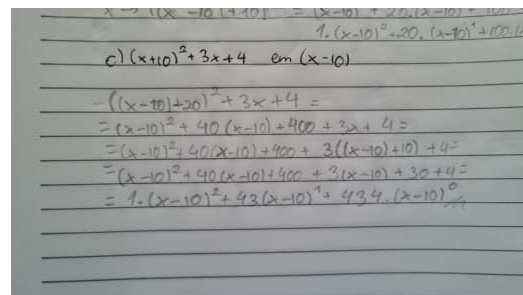 x → ((x-10)+10) = (x-10)² + 20.(x-10) + 100
1.(x-10)²+20.(x-10)¹+100.(x
c) (x+10)²+3x+4 em (x-10)
-((x-10)+20)²+3x+4=
=(x-10)²+40(x-10)+400+3x+4=
=(x-10)²+40(x-10)+400+ 3((x-10)+10)+4=
=(x-10)²+40(x-10)+400 +3(x-10)+30+4=
= 1.(x-10)²+43(x-10)¹+434.(x-10)⁰